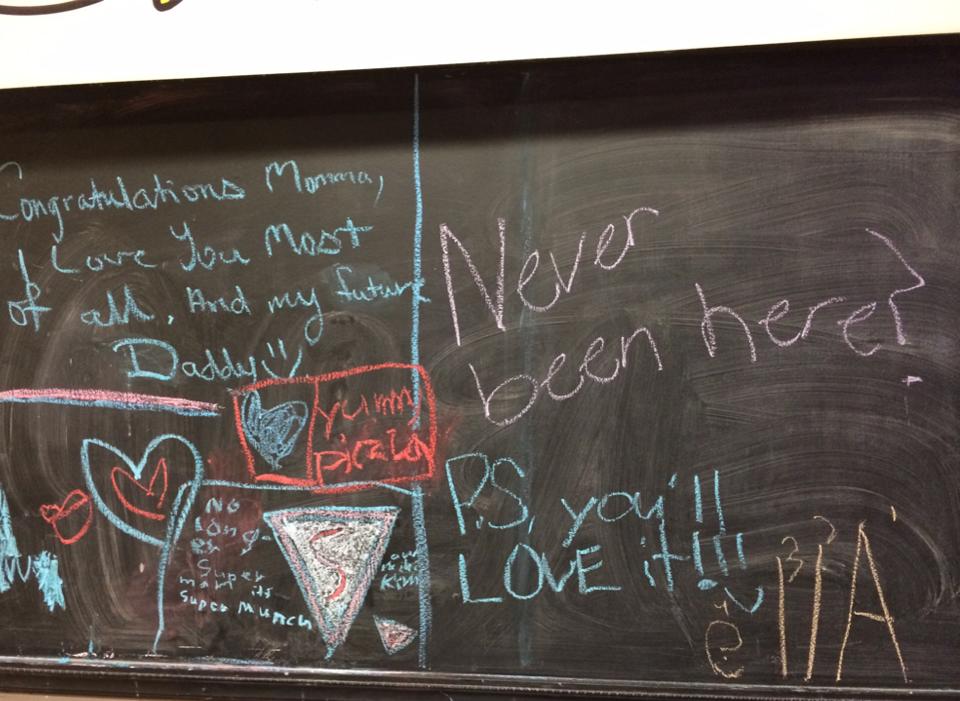 Congratulations Momma,
I Love You Most
of all. And my future
Daddy
yummy
No
long-
er
Super
man its
Super Munch
S
Never
been here?
P.S. you'll
LOVE it!!!